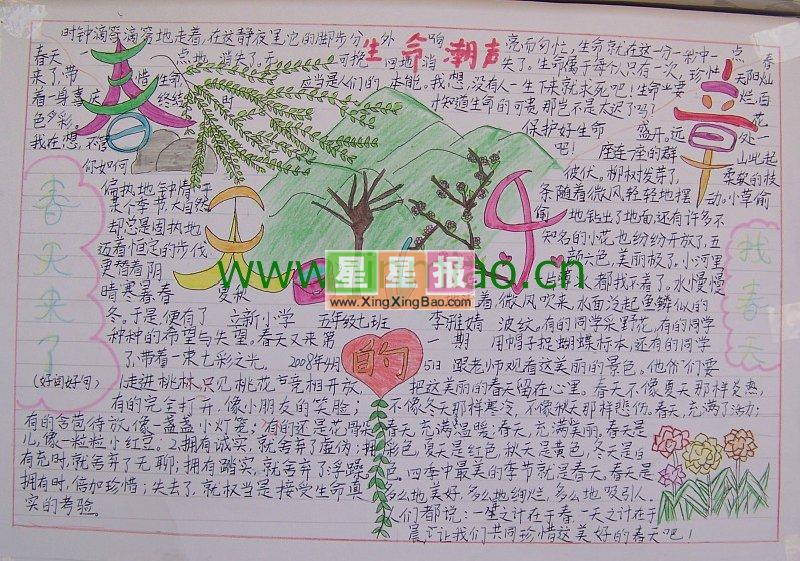 生命潮声
时钟滴答滴答地走着,在这静夜里它的脚步分外响亮而匆忙,生命就在这一分一秒中一点
点地消失了,不可挽回地消失了。生命属于每个人只有一次,珍惜
生命,应当是人们的本能。我想,没有人一生下来就求死吧!生命
终结时才知道生命的可贵那岂不是太迟了吗?
保护好生命吧!
春天
来了,带
着一身喜庆
色多彩。
我在想,不管
你如何
偏执地钟情于
某个季节,大自然
却总是固执地
迈着恒定的步伐
更替着阴
晴寒暑春夏秋
冬。于是,便有了
种种的希望与失望。春天又来
了,带着一束七彩之光。
春天的章
春天来了
找春天
立新小学 五年级七班 李雅婧
第一期
2008年4月5日
自勺
春天阳灿
烂,百花
盛开,远处一
座连一座的群山此起
彼伏。柳树发芽了,柔软的枝
条随着微风轻轻地摆动。小草偷
偷地钻出了地面,还有许多不
知名的小花也纷纷开放了,五
颜六色,美丽极了。小河里
都找不着了。水慢慢
着,微风吹来,水面泛起鱼鳞似的
波纹。有的同学采野花,有的同学
用帽子捉蝴蝶标本,还有的同学
跟老师观看这美丽的景色。他们要
把这美丽的春天留在心里。春天不像夏天那样炎热,
不像冬天那样寒冷,不像秋天那样悲伤。春天,充满了活力;
春天,充满温暖;春天,充满美丽。春天是
彩色,夏天是红色,秋天是黄色,冬天是白
色。四季中最美的季节就是春天。春天是
多么地美好,多么地绚烂,多么地吸引人。
人们都说:一年之计在于春,一天之计在于
晨。让我们共同珍惜这美好的春天吧!
(好词好句)
1.走进桃林,只见桃花竞相开放,
有的完全打开,像小朋友的笑脸;
有的含苞待放,像一盏盏小灯笼;有的还是花骨朵
儿,像一粒粒小红豆。2.拥有诚实,就舍弃了虚伪;拥
有充时,就舍弃了无聊;拥有踏实,就舍弃了浮躁。
拥有时,倍加珍惜;失去了,就权当是接受生命真
实的考验。
星星报
www.XingXingBao.com